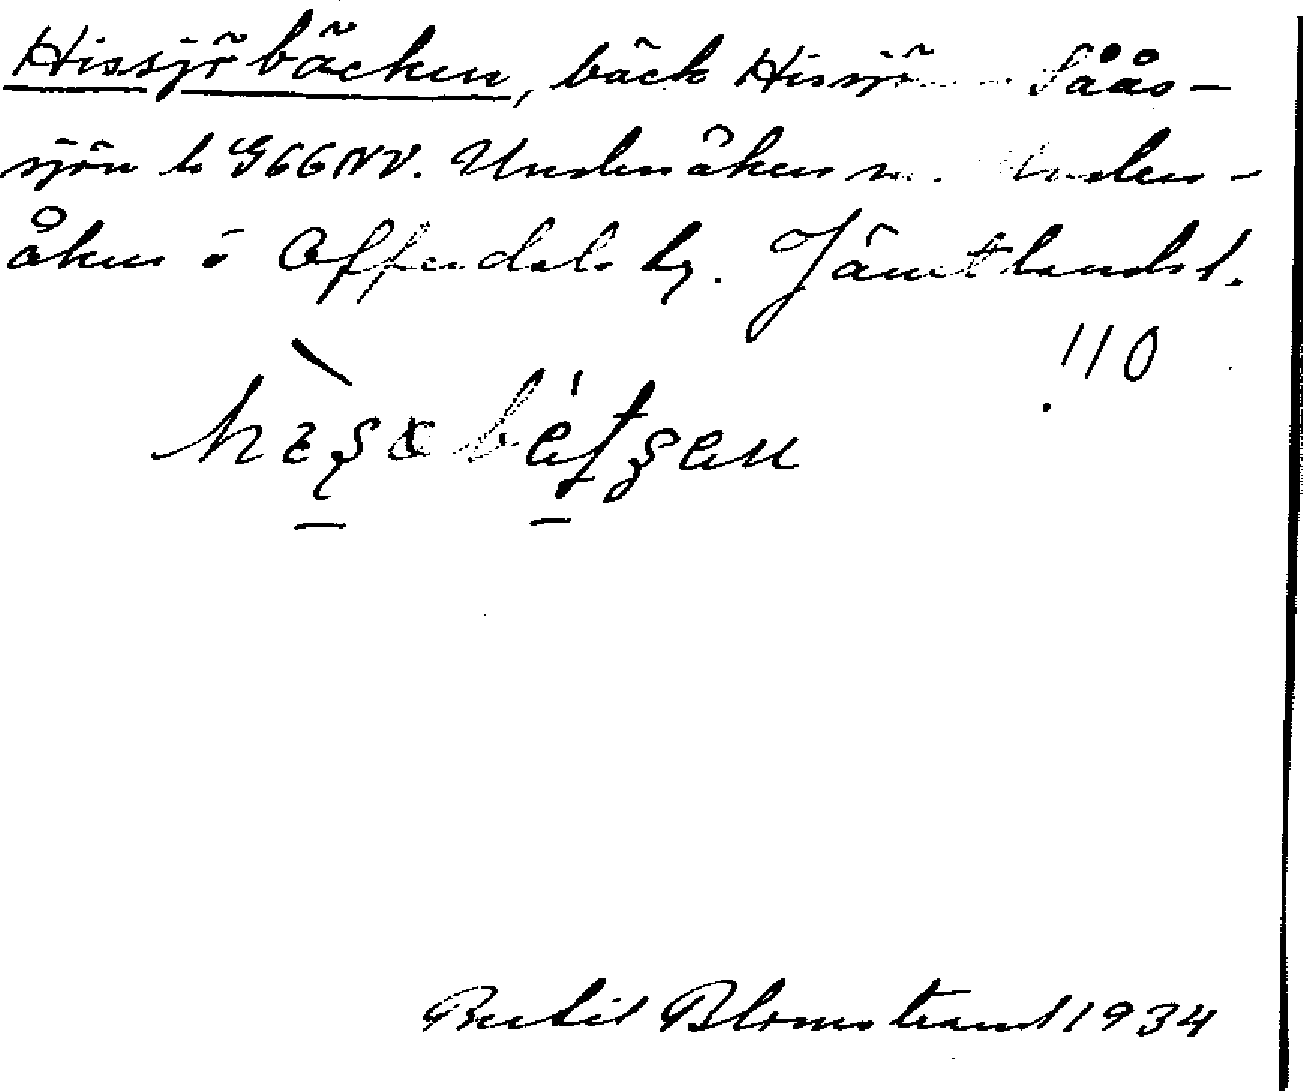 Hissjöbäcken, bäck Hissjön - Såås-
sjön k G66NV. Undersåkers sn. Unders-
åkers o Offerdals tg. Jämtlands l.
110
Bertil Blomstrand 1934